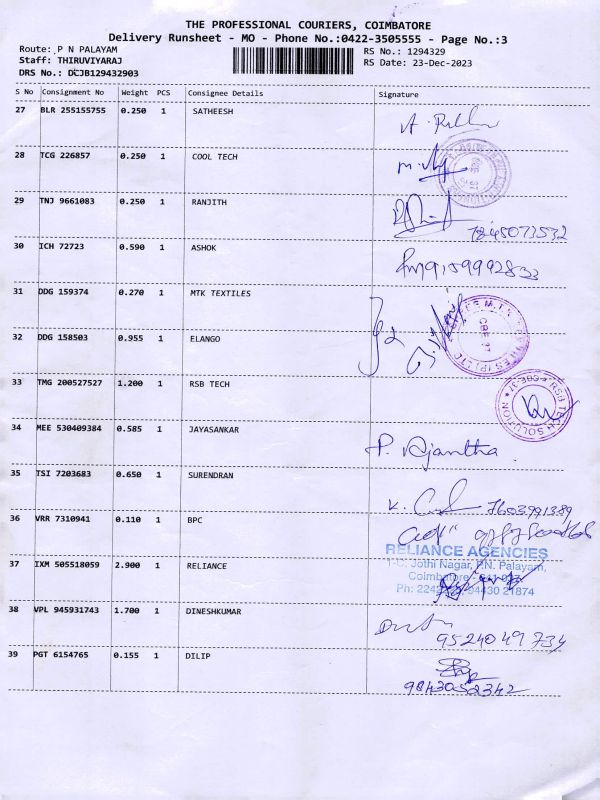 THE PROFESSIONAL COURIERS, COIMBATORE
Delivery Runsheet - MO - Phone No.:0422-3505555 - Page No.:3
Route: P N PALAYAM
RS No.: 1294329
Staff: THIRUVIYARAJ
RS Date: 23-Dec-2023
DRS No.: DCJB129432903
S No Consignment No Weight PCS Consignee Details Signature
27 BLR 255155755 0.250 1 SATHEESH
28 TCG 226857 0.250 1 COOL TECH
29 TNJ 9661083 0.250 1 RANJITH
30 ICH 72723 0.590 1 ASHOK
31 DDG 159374 0.270 1 MTK TEXTILES
32 DDG 158503 0.955 1 ELANGO
33 TMG 200527527 1.200 1 RSB TECH
RSB TECH SOLUTION
34 MEE 530409384 0.585 1 JAYASANKAR
P. Ajantha
35 TSI 7203683 0.650 1 SURENDRAN
7603991389
36 VRR 7310941 0.110 1 BPC
RELIANCE AGENCIES
37 IXM 505518059 2.900 1 RELIANCE
Jothi Nagar, P.N. Palayam,
94430 21874
38 VPL 945931743 1.700 1 DINESHKUMAR
9524049734
39 PGT 6154765 0.155 1 DILIP
9843052342